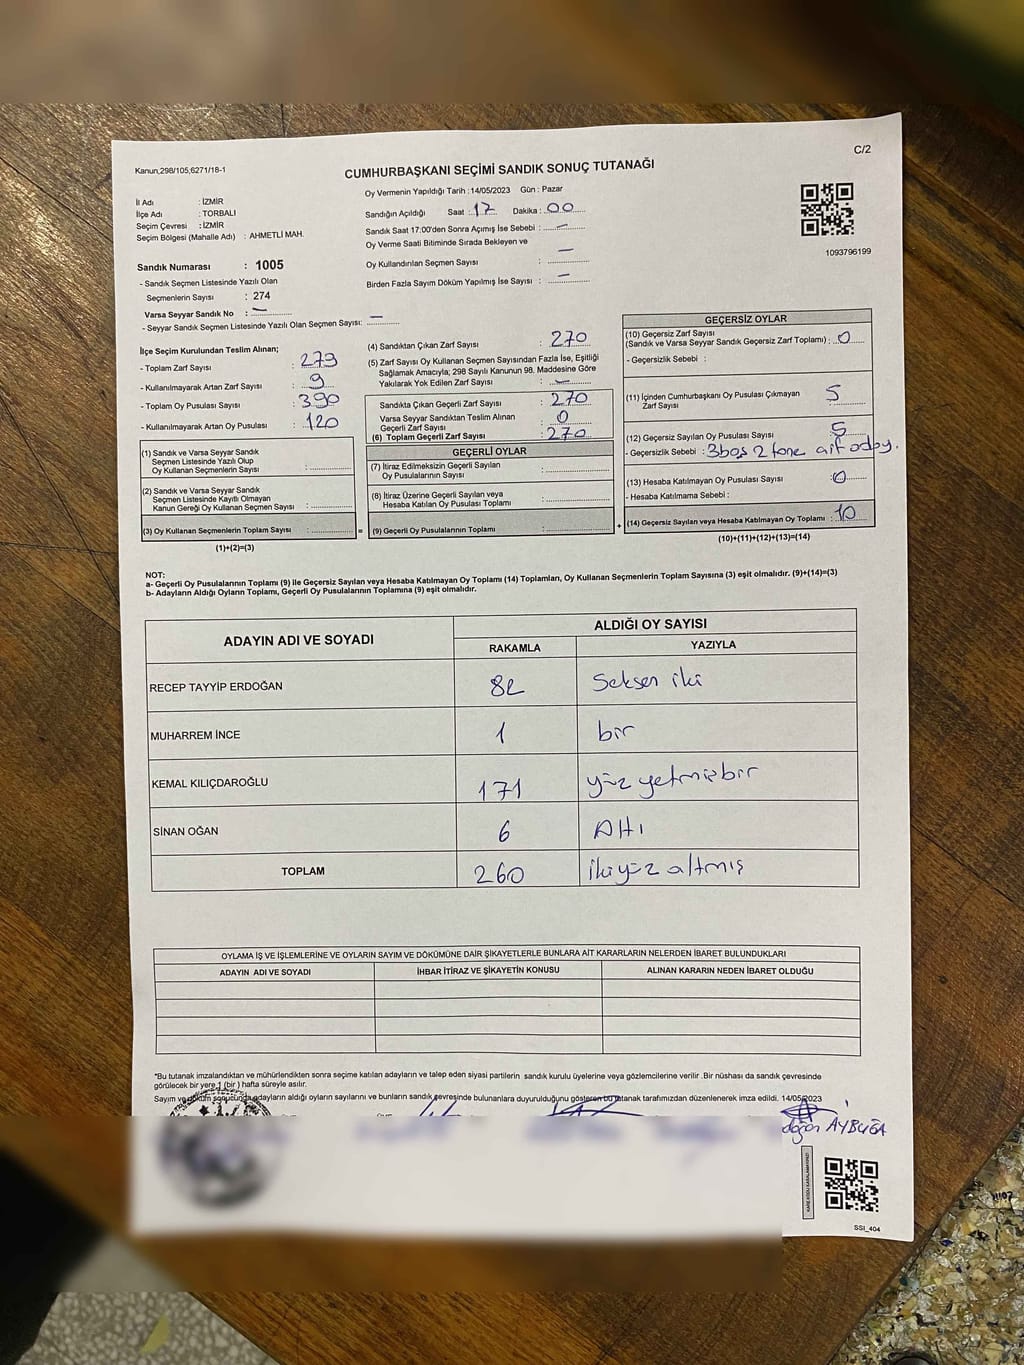 C/2
Kanun,298/105,6271/18-1
CUMHURBAŞKANI SEÇİMİ SANDIK SONUÇ TUTANAĞI
Oy Vermenin Yapıldığı Tarih :14/05/2023 Gün : Pazar
İl Adı : İZMİR
İlçe Adı : TORBALI
Seçim Çevresi : İZMİR
Seçim Bölgesi (Mahalle Adı) : AHMETLİ MAH.
Sandık Numarası : 1005
- Sandık Seçmen Listesinde Yazılı Olan
Seçmenlerin Sayısı : 274
Varsa Seyyar Sandık No : —
- Seyyar Sandık Seçmen Listesinde Yazılı Olan Seçmen Sayısı: —
Sandığın Açıldığı Saat : 17 Dakika : 00
Sandık Saat 17:00'den Sonra Açımış İse Sebebi : —
Oy Verme Saati Bitiminde Sırada Bekleyen ve
Oy Kullandırılan Seçmen Sayısı : —
Birden Fazla Sayım Döküm Yapılmış İse Sayısı : —
1093796199
İlçe Seçim Kurulundan Teslim Alınan;
- Toplam Zarf Sayısı : 279
- Kullanılmayarak Artan Zarf Sayısı : 9
- Toplam Oy Pusulası Sayısı : 390
- Kullanılmayarak Artan Oy Pusulası : 120
(1) Sandık ve Varsa Seyyar Sandık
Seçmen Listesinde Yazılı Olup
Oy Kullanan Seçmenlerin Sayısı :
(2) Sandık ve Varsa Seyyar Sandık
Seçmen Listesinde Kayıtlı Olmayan
Kanun Gereği Oy Kullanan Seçmen Sayısı :
(3) Oy Kullanan Seçmenlerin Toplam Sayısı : =
(1)+(2)=(3)
(4) Sandıktan Çıkan Zarf Sayısı : 270
(5) Zarf Sayısı Oy Kullanan Seçmen Sayısından Fazla İse, Eşitliği
Sağlamak Amacıyla; 298 Sayılı Kanunun 98. Maddesine Göre
Yakılarak Yok Edilen Zarf Sayısı : —
Sandıkta Çıkan Geçerli Zarf Sayısı : 270
Varsa Seyyar Sandıktan Teslim Alınan
Geçerli Zarf Sayısı : 0
(6) Toplam Geçerli Zarf Sayısı : 270
GEÇERLİ OYLAR
(7) İtiraz Edilmeksizin Geçerli Sayılan
Oy Pusulalarının Sayısı :
(8) İtiraz Üzerine Geçerli Sayılan veya
Hesaba Katılan Oy Pusulası Toplamı :
(9) Geçerli Oy Pusulalarının Toplamı : +
GEÇERSİZ OYLAR
(10) Geçersiz Zarf Sayısı
(Sandık ve Varsa Seyyar Sandık Geçersiz Zarf Toplamı) : 0
- Geçersizlik Sebebi :
(11) İçinden Cumhurbaşkanı Oy Pusulası Çıkmayan
Zarf Sayısı : 5
(12) Geçersiz Sayılan Oy Pusulası Sayısı : 5
- Geçersizlik Sebebi : 3 boş 2 tane
(13) Hesaba Katılmayan Oy Pusulası Sayısı : 0
- Hesaba Katılmama Sebebi :
(14) Geçersiz Sayılan veya Hesaba Katılmayan Oy Toplamı : 10
(10)+(11)+(12)+(13)=(14)
NOT:
a- Geçerli Oy Pusulalarının Toplamı (9) ile Geçersiz Sayılan veya Hesaba Katılmayan Oy Toplamı (14) Toplamları, Oy Kullanan Seçmenlerin Toplam Sayısına (3) eşit olmalıdır. (9)+(14)=(3)
b- Adayların Aldığı Oyların Toplamı, Geçerli Oy Pusulalarının Toplamına (9) eşit olmalıdır.
ADAYIN ADI VE SOYADI ALDIĞI OY SAYISI
RAKAMLA YAZIYLA
RECEP TAYYİP ERDOĞAN 82 Seksen iki
MUHARREM İNCE 1 bir
KEMAL KILIÇDAROĞLU 171 yüz yetmişbir
SİNAN OĞAN 6 Altı
TOPLAM 260 ikiyüz altmış
OYLAMA İŞ VE İŞLEMLERİNE VE OYLARIN SAYIM VE DÖKÜMÜNE DAİR ŞİKAYETLERLE BUNLARA AİT KARARLARIN NELERDEN İBARET BULUNDUKLARI
ADAYIN ADI VE SOYADI İHBAR İTİRAZ VE ŞİKAYETİN KONUSU ALINAN KARARIN NEDEN İBARET OLDUĞU
*Bu tutanak imzalandıktan ve mühürlendikten sonra seçime katılan adayların ve talep eden siyasi partilerin sandık kurulu üyelerine veya gözlemcilerine verilir .Bir nüshası da sandık çevresinde
görülecek bir yere 1 (bir ) hafta süreyle asılır.
Sayım ve döküm sonucunda adayların aldığı oyların sayılarını ve bunların sandık çevresinde bulunanlara duyurulduğunu gösteren bu tutanak tarafımızdan düzenlenerek imza edildi. 14/05/2023
AYBUĞA
SSI_404